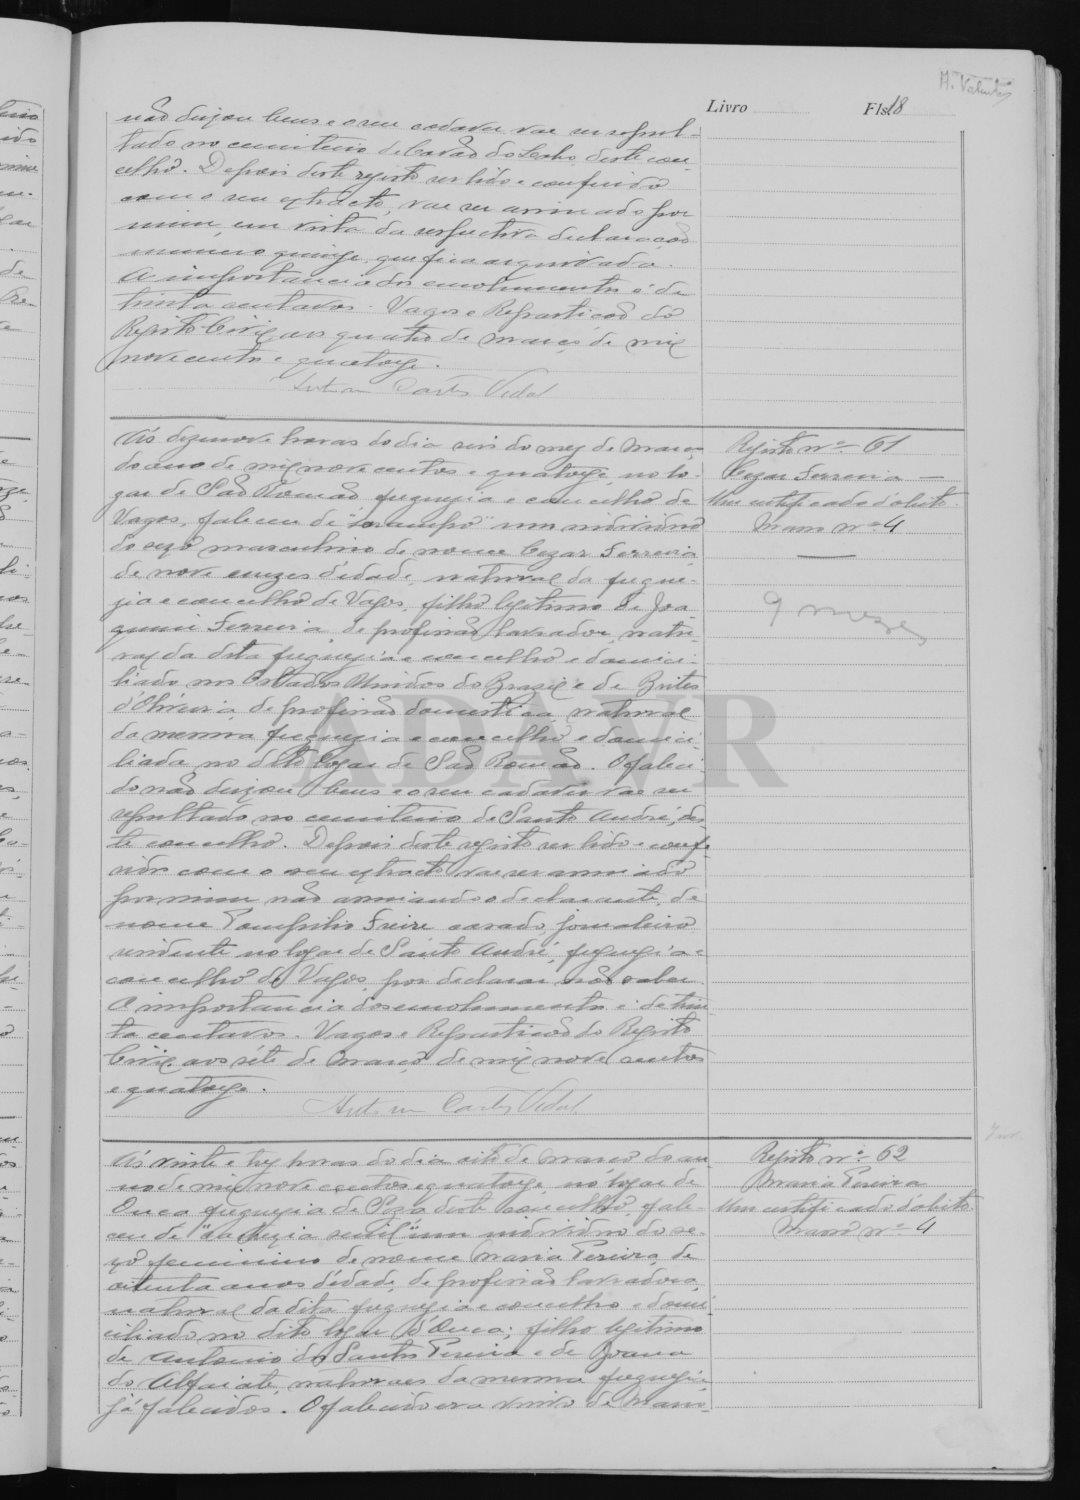 A. Valente
Livro Fls. 18
não deixou bens e o seu cadaver vae ser sepul-
tado no cemiterio de Covão do Lobo, deste con-
celho. Depois deste registo ser lido e conferido
com o seu extracto, vae ser assinado por
mim, em vista da respectiva declaração
numero quinze, que fica arquivada.
A importancia dos emolumentos é de
trinta centavos. Vagos e Repartição do
Registo Civil aos quatro de março de mil
nove centos e quatorze.
Antonio Carlos Vidal
Ás dezenove horas do dia seis do mez de março
do ano de mil nove centos e quatorze, no lo-
gar de São Romão, freguezia e concelho de
Vagos, faleceu de "sarampo" um individuo
do sexo masculino de nome Cezar Ferreira,
de nove mezes d'idade, natural da fregue-
zia e concelho de Vagos, filho legitimo de Joa-
quim Ferreira, de profissão lavrador, natu-
ral da dita freguezia e concelho e domici-
liado nos Estados Unidos do Brazil e de Brites
d'Oliveira, de profissão domestica, natural
da mesma freguezia e concelho e domici-
liada no dito logar de São Romão. O faleci-
do não deixou bens e o seu cadaver vae ser
sepultado no cemiterio de Santo André, des-
te concelho. Depois deste registo ser lido e confe-
rido com o seu extracto vae ser assinado
por mim não assinando o declarante, de
nome Pompilio Freire casado, jornaleiro
residente no logar de Santo André, freguezia e
concelho de Vagos, por declarar não saber.
A importancia dos emolumentos é de trin-
ta centavos. Vagos e Repartição do Registo
Civil aos séte de março de mil nove centos
e quatorze.
Antonio Carlos Vidal
Registo nº 61
Cezar Ferreira —
Um certificado d'obito
Maço nº 4
9 mezes
Ás vinte e tres horas do dia oito de março do an-
no de mil nove centos e quatorze, no logar de
Ouca freguezia de Soza deste concelho, fale-
ceu de um individuo do se-
xo feminino de nome Maria Pereira, de
oitenta anos d'idade, de profissão lavradora,
natural da dita freguezia e concelho e domi-
ciliado no dito logar d'Ouca; filho legitimo
de Antonio dos Santos Pereira e de Joana
do Alfaiate, naturaes da mesma freguezia,
já falecidos. O falecido era viuvo de Mano-
Registo nº 62
Maria Pereira
Um certificado d'obito
Maço nº 4
ADAVR